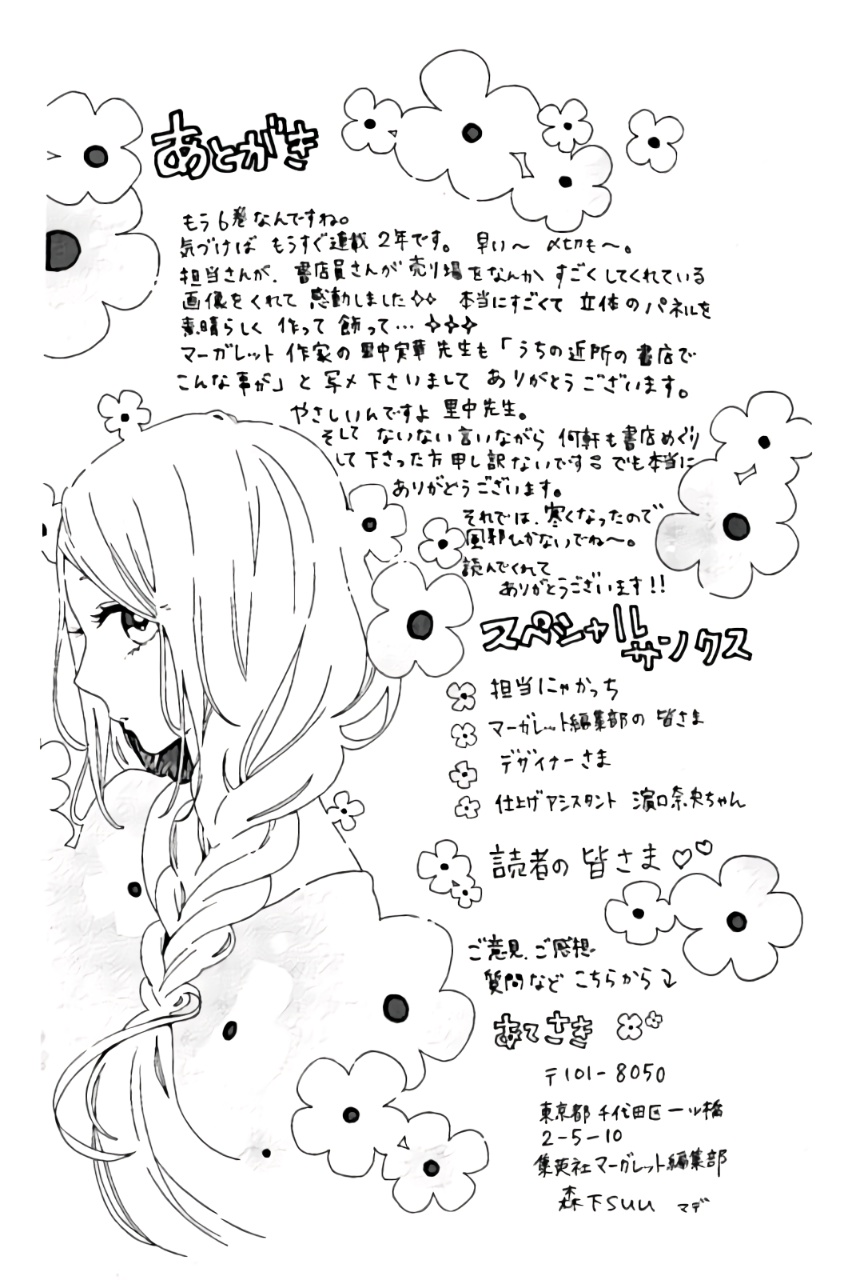 あとがき
もう6巻なんですね。
気づけば もうすぐ連載 2年です。 早い〜
担当さんが、書店員さんが売り場をなんか すごくしてくれている
画像をくれて 感動しました✧✧ 本当にすごくて 立体のパネルを
素晴らしく 作って 飾って…✧✧✧
マーガレット 作家の 里中実華 先生も「うちの近所の書店で
こんな事が」と 写メ下さいまして ありがとうございます。
やさしいんですよ 里中先生。
そして ないない言いながら 何軒も書店めぐり
して下さった方申し訳ないです でも本当に
ありがとうございます。
それでは、寒くなったので
風邪ひかないでね〜。
読んでくれて
ありがとうございます!!
スペシャル
サンクス
担当にゃかっち
マーガレット編集部の 皆さま
デザイナーさま
仕上げアシスタント 濵口奈央ちゃん
読者の 皆さま♡♡
ご意見、ご感想、
質問など こちらから
あてさき
〒101-8050
東京都 千代田区 一ツ橋
2-5-10
集英社マーガレット編集部
森下suu マデ